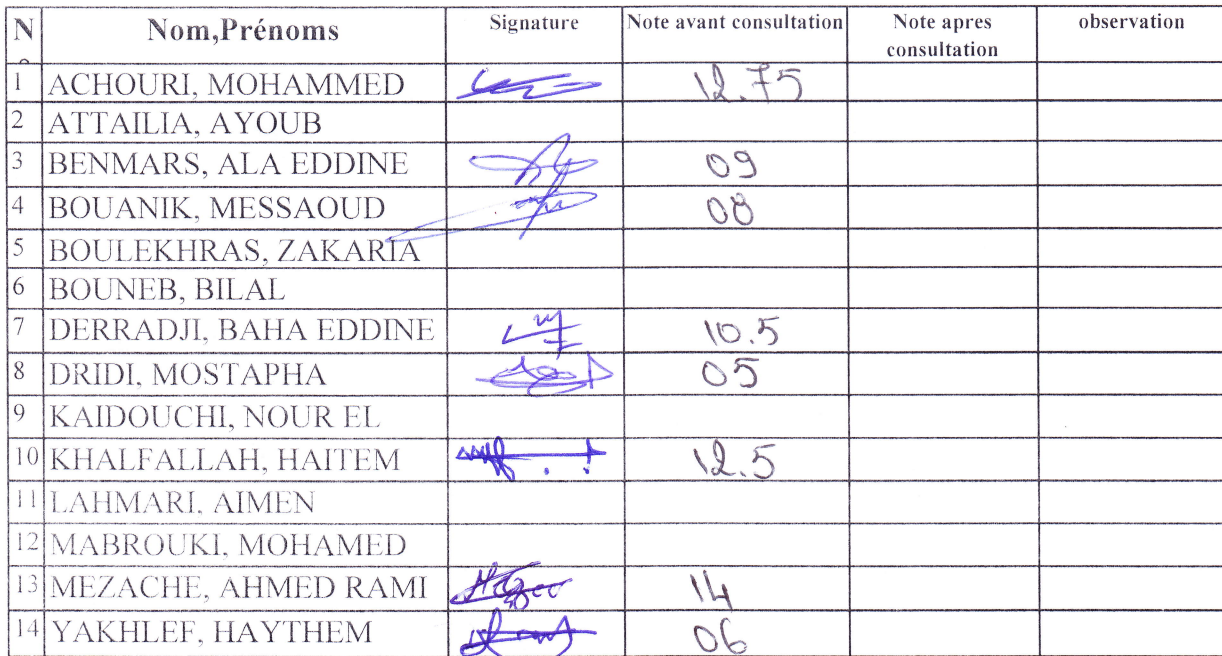 N° Nom,Prénoms Signature Note avant consultation Note apres consultation observation
1 ACHOURI, MOHAMMED 12.75
2 ATTAILIA, AYOUB
3 BENMARS, ALA EDDINE 09
4 BOUANIK, MESSAOUD 08
5 BOULEKHRAS, ZAKARIA
6 BOUNEB, BILAL
7 DERRADJI, BAHA EDDINE 10.5
8 DRIDI, MOSTAPHA 05
9 KAIDOUCHI, NOUR EL
10 KHALFALLAH, HAITEM 12.5
11 LAHMARI, AIMEN
12 MABROUKI, MOHAMED
13 MEZACHE, AHMED RAMI 14
14 YAKHLEF, HAYTHEM 06